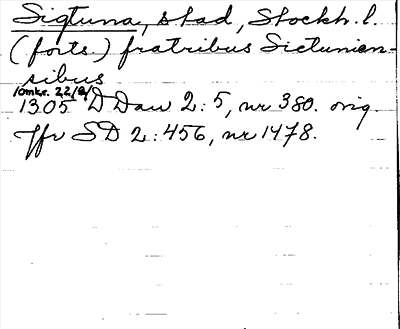 Sigtuna, stad, Stockh. l.
(forts) fratribus Sictunien-
sibus
(omkr. 22/8)
1305 D Dan 2:5, nr 380. orig.
Jfr SD 2:456, nr 1478.